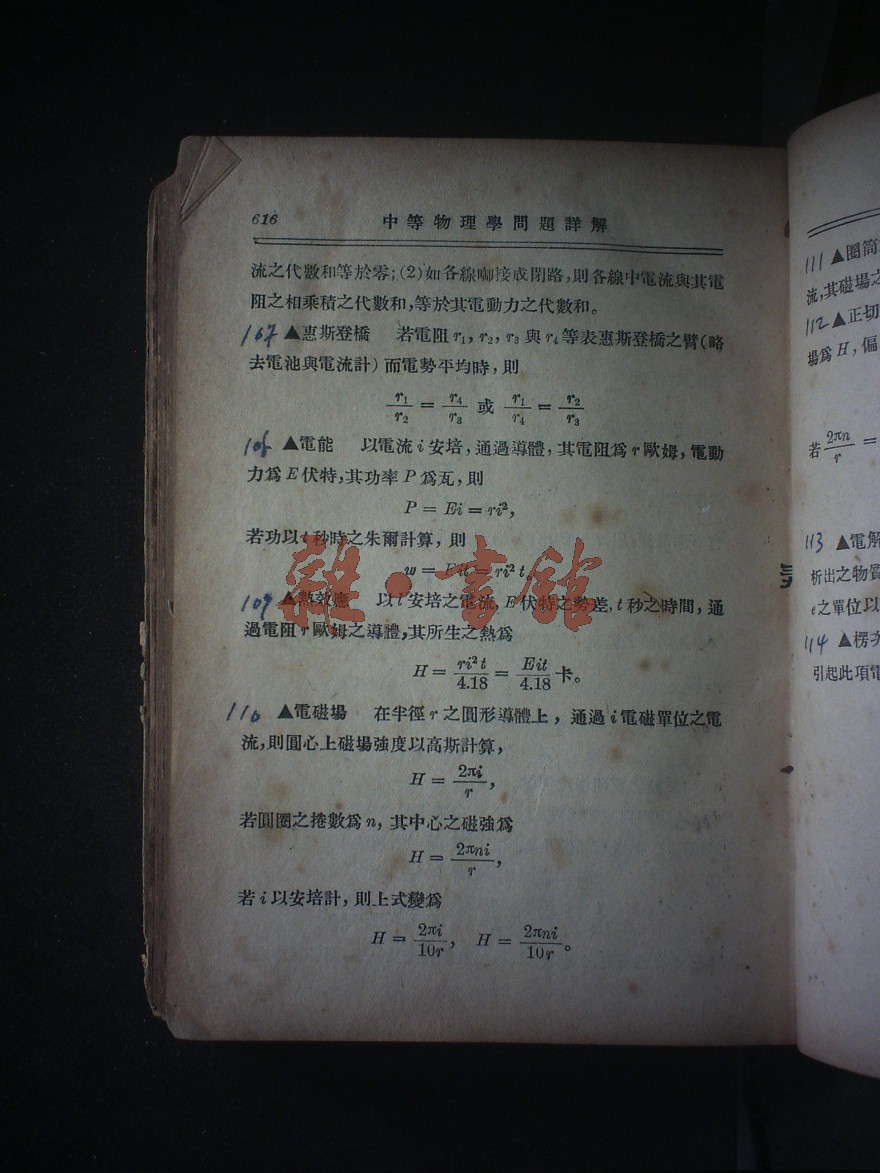 616 中等物理學問題詳解
流之代數和等於零;(2)如各線啣接成閉路,則各線中電流與其電
阻之相乘積之代數和,等於其電動力之代數和。
107 ▲惠斯登橋 若電阻 r₁, r₂, r₃ 與 r₄ 等表惠斯登橋之臂(略
去電池與電流計)而電勢平均時,則
r₁/r₂ = r₄/r₃ 或 r₁/r₄ = r₂/r₃
108 ▲電能 以電流 i 安培,通過導體,其電阻爲 r 歐姆,電動
力爲 E 伏特,其功率 P 爲瓦,則
P = Ei = ri²,
若功以 t 秒時之朱爾計算,則
w = Eit = ri² t
109 ▲熱效應 以 i 安培之電流, E 伏特之勢差, t 秒之時間,通
過電阻 r 歐姆之導體,其所生之熱爲
H = ri²t/4.18 = Eit/4.18 卡。
110 ▲電磁場 在半徑 r 之圓形導體上,通過 i 電磁單位之電
流,則圓心上磁場強度以高斯計算,
H = 2πi/r,
若圓圈之捲數爲 n, 其中心之磁強爲
H = 2πni/r,
若 i 以安培計,則上式變爲
H = 2πi/10r, H = 2πni/10r。
雜·書館
111 ▲圈筒
流,其磁場之
112 ▲正切
場爲 H, 偏
若 2πn/r =
113 ▲電解
析出之物質
e之單位以
114 ▲楞次
引起此項電